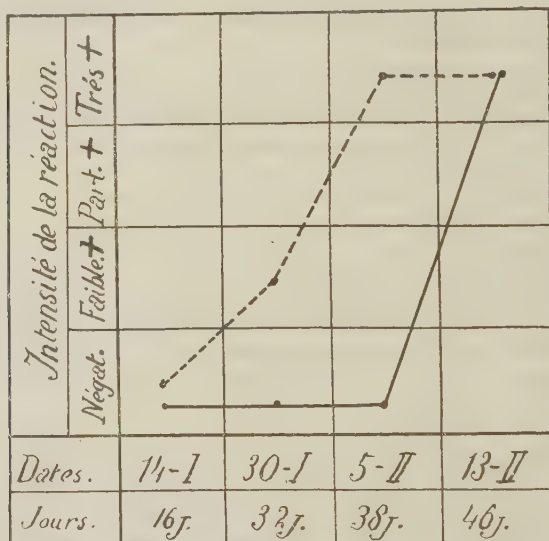 Intensité de la réaction.
Trés +
Part. +
Faible. +
Négat.
Dates. 14-I 30-I 5-II 13-II
Jours. 16J. 32J. 38J. 46J.